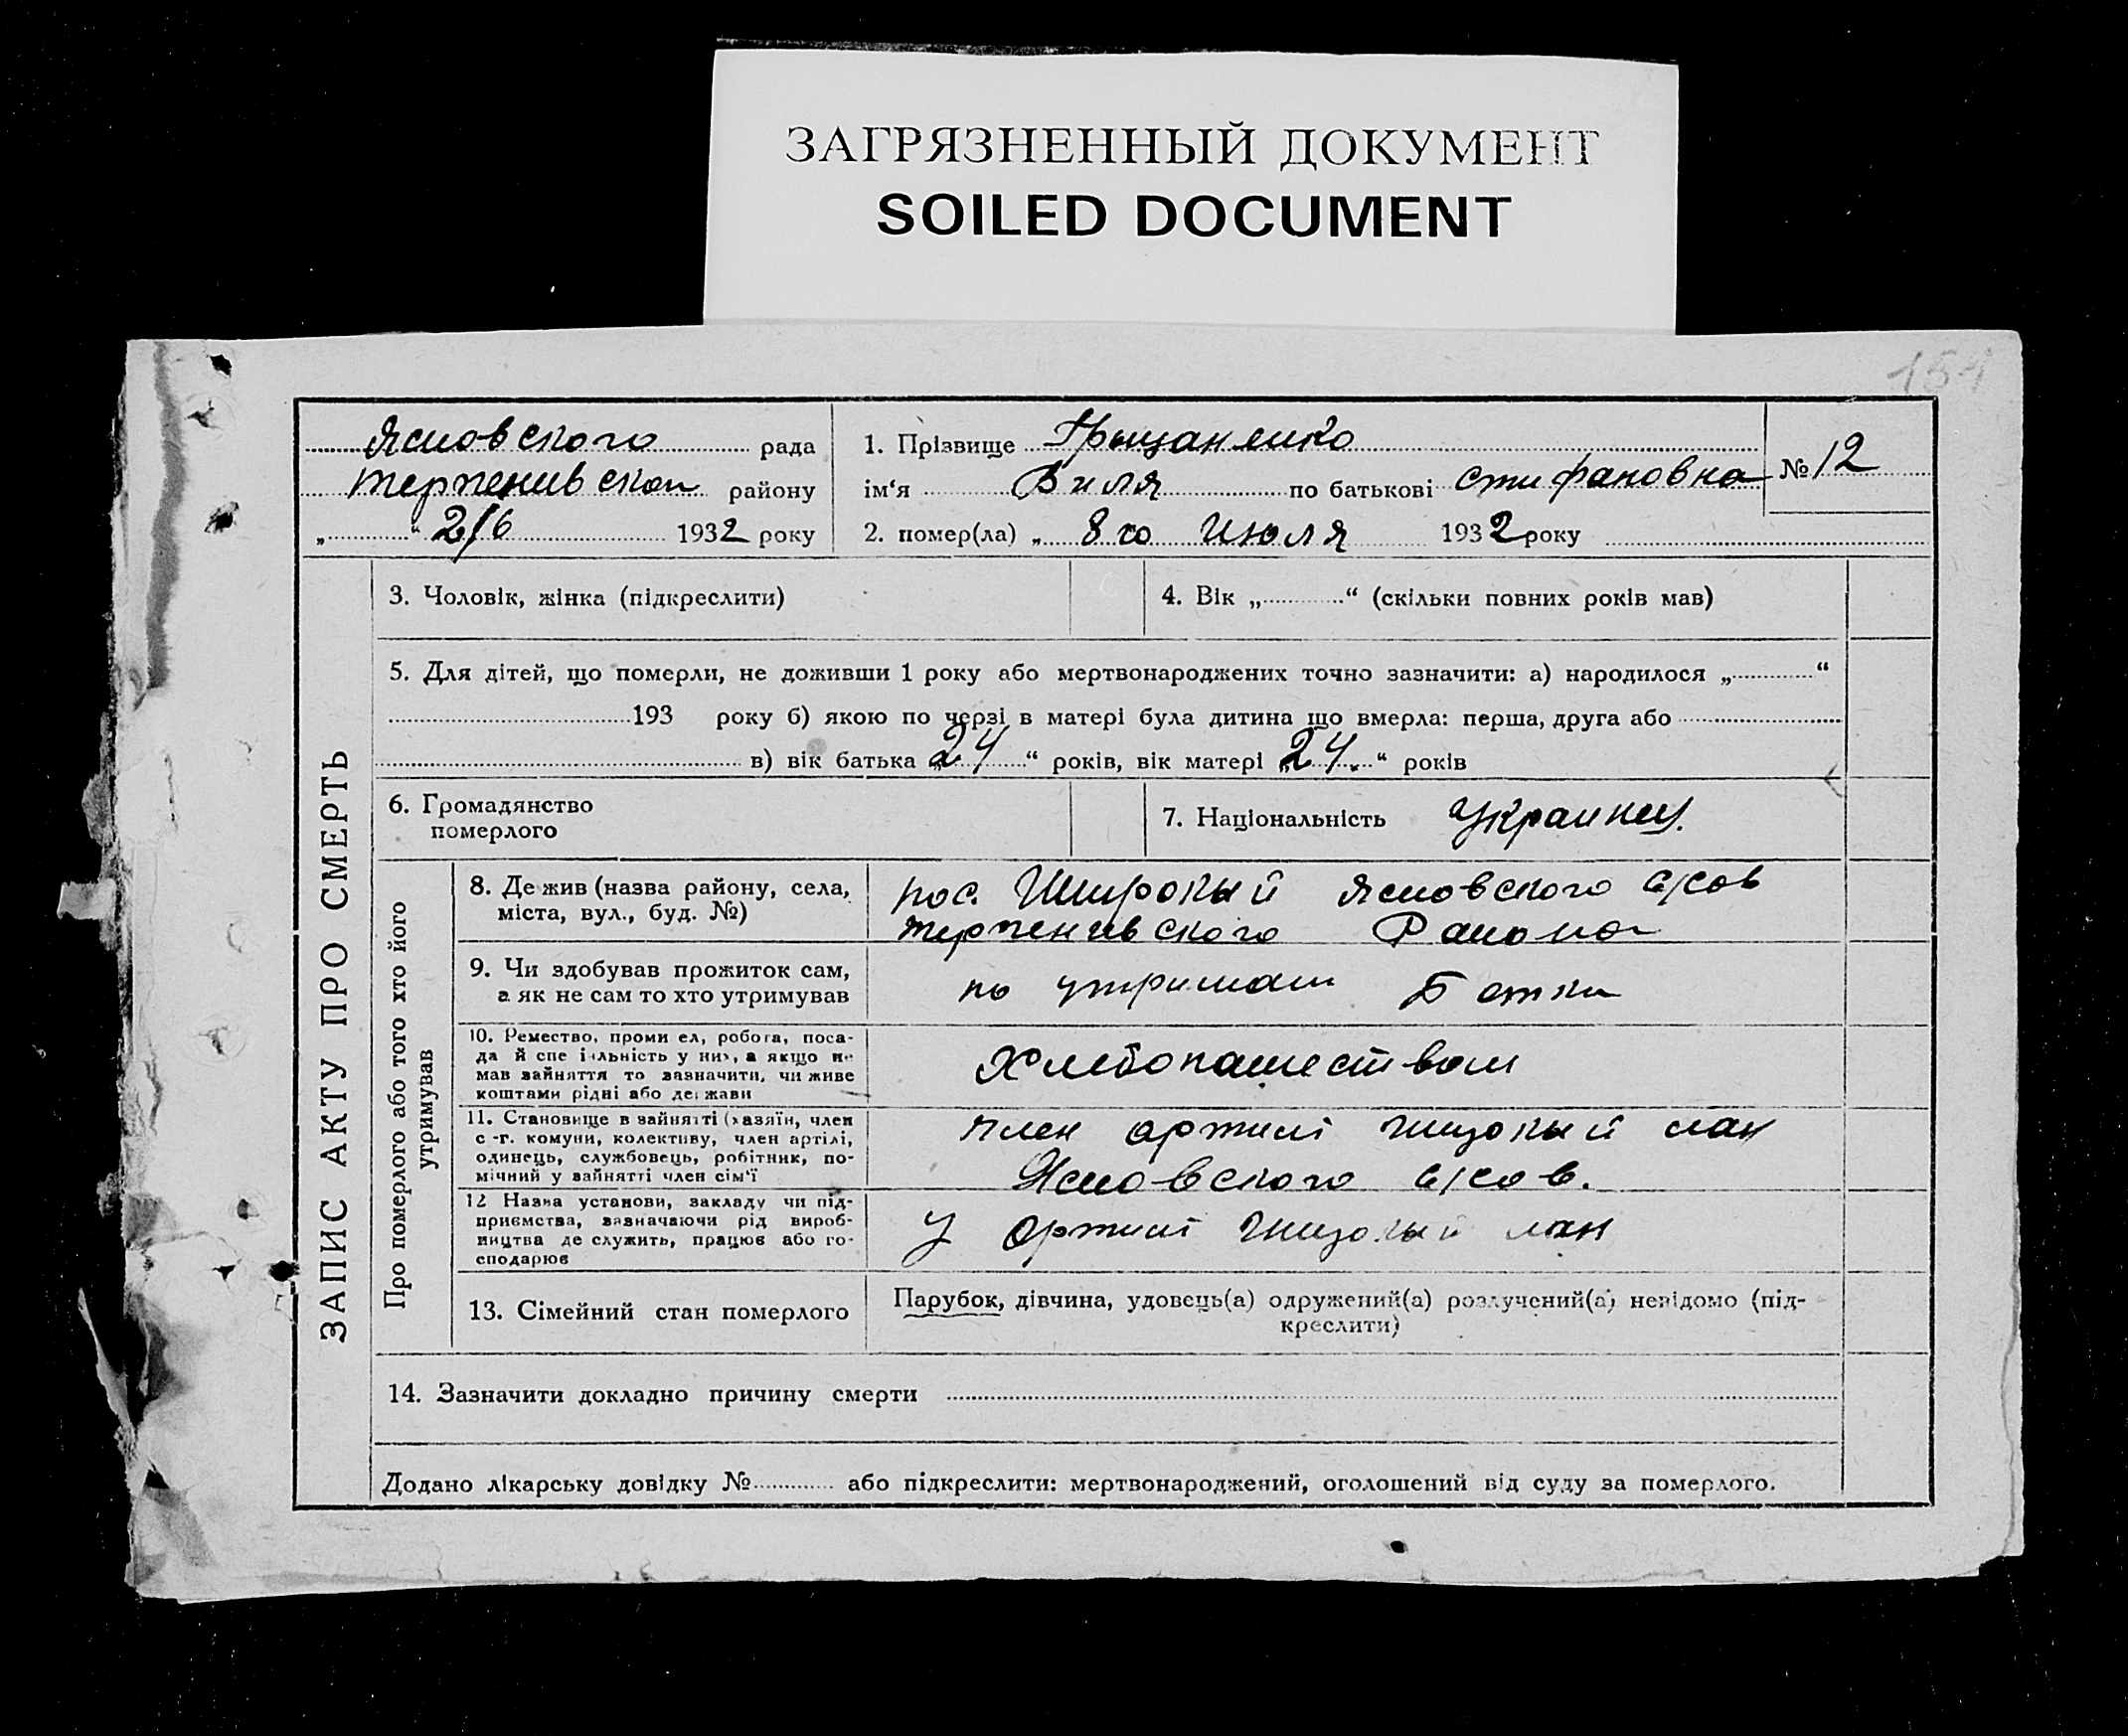 ЗАГРЯЗНЕННЫЙ ДОКУМЕНТ
SOILED DOCUMENT
154
Ясновского рада
терпенивскои району
„ “ 2/6 1932 року
1. Прізвище Грыцаненко
ім‘я Виля по батькові стифановна
№ 12
2. помер(ла) „ 8го Июля 1932 року
ЗАПИС АКТУ ПРО СМЕРТЬ
3. Чоловік, жінка (підкреслити)
4. Вік „ “ (скільки повних років мав)
5. Для дітей, що померли, не доживши 1 року або мертвонароджених точно зазначити: а) народилося „ “
193 року б) якою по черзі в матері була дитина що вмерла: перша, друга або
в) вік батька „24“ років, вік матері „24.“ років
6. Громадянство
померлого
7. Національність Украинец.
Про померлого або того хто його
утримував
8. Де жив (назва району, села,
міста, вул., буд. №)
пос. Широкый Ясновского с/сов
терпенивского Раиона
9. Чи здобував прожиток сам,
а як не сам то хто утримував
Батки
10. Ремество, проми ел, робота, поса-
да й спе іальність у них, а якщо не
мав зайняття то зазначити, чи живе
коштами рідні або держави
Хлебопашеством
11. Становище в зайнятті (хазяїн, член
с -г. комуни, колективу, член артілі,
одинець, службовець, робітник, по-
мічний у зайнятті член сім‘ї
член артилі шырокый лан
Ясновского с/сов.
12 Назва установи, закладу чи під-
приємства, зазначаючи рід вироб-
ництва де служить, працює або го-
сподарює
У артилі шырокый лан
13. Сімейний стан померлого
Парубок, дівчина, удовець(а) одружений(а) розлучений(а) невідомо (під-
креслити)
14. Зазначити докладно причину смерти
Додано лікарську довідку № або підкреслити: мертвонароджений, оголошений від суду за померлого.